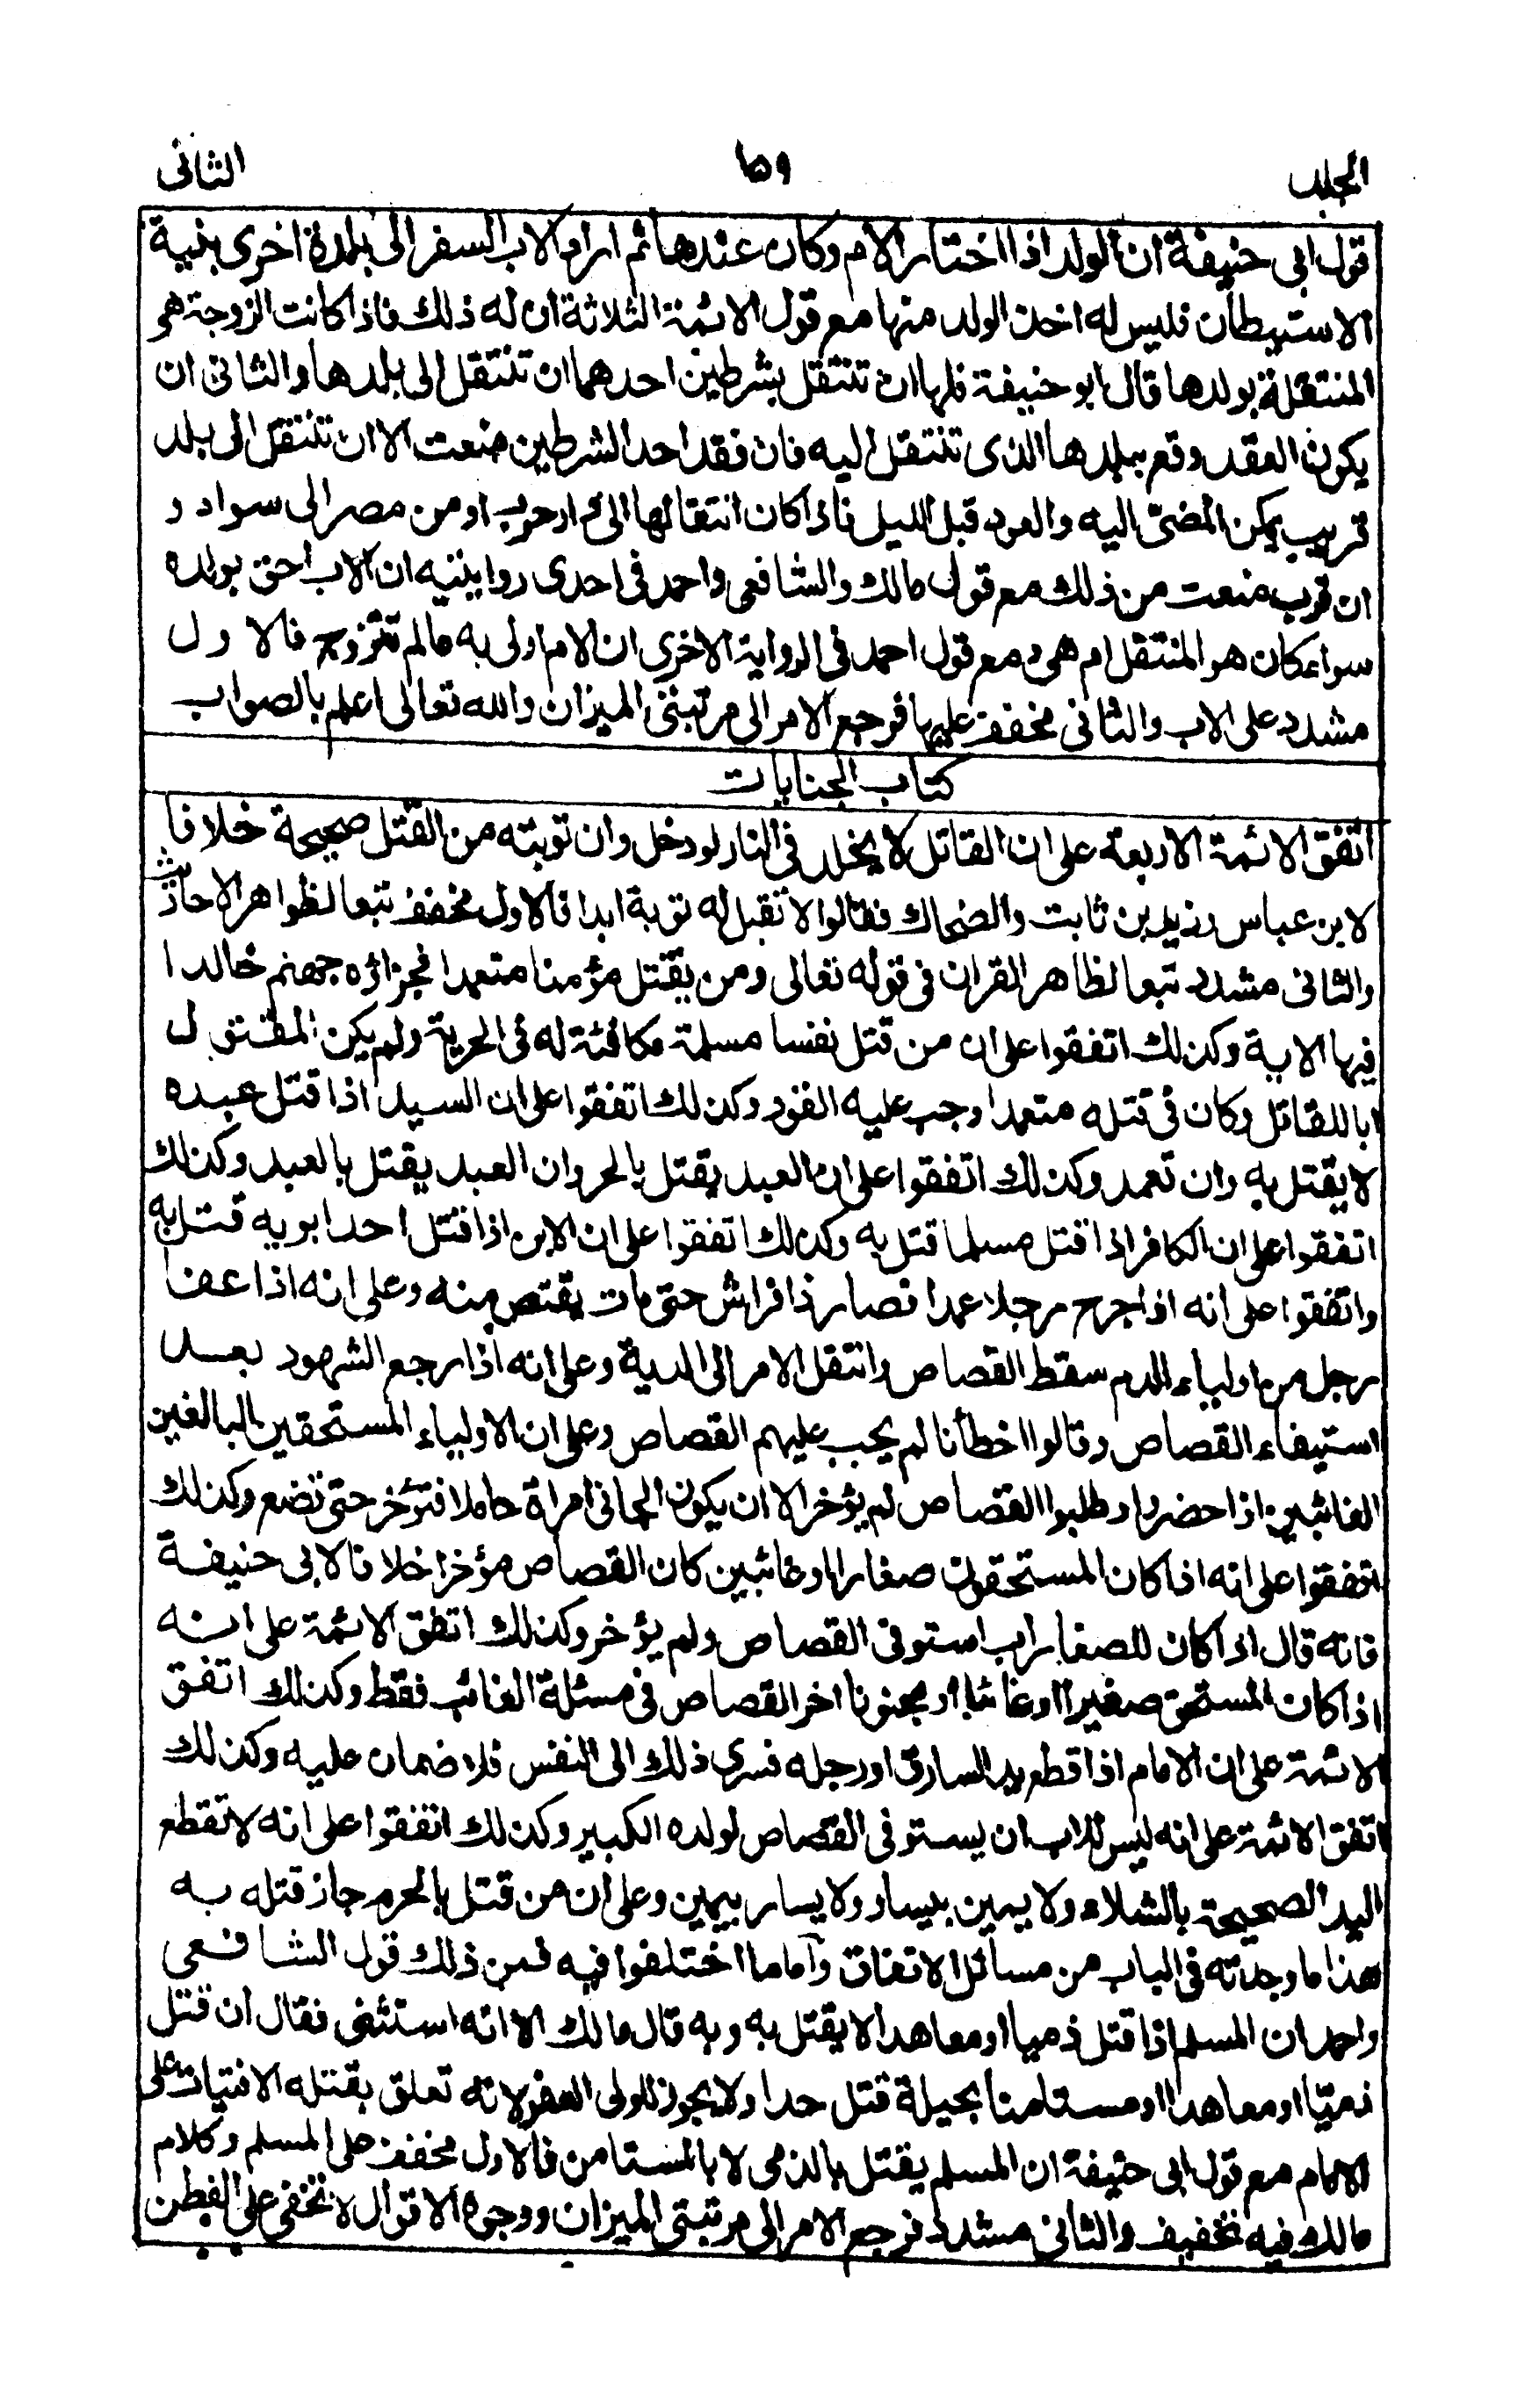 الجلد ١٥٩ الثانى
قول ابى حنيفة ان الولد اذا اختار الام وكان عندها ثم اراد الاب السفر الى بلدة اخرى بنية
الاستيطان فليس له اخذ الولد منها مع قول الائمة الثلاثة ان له ذلك فاذا كانت الزوجة هى
المنتقلة بولدها قال ابو حنيفة فلها ان تنتقل بشرطين احدهما ان تنتقل الى بلدها والثانى ان
يكون العقد وقع ببلدها الذى تنتقل اليه فان فقد احد الشرطين منعت الا ان تنتقل الى بلد
قريب يمكن المضى اليه والعود قبل الليل فاذا كان انتقالها الى دار حرب او من مصر الى سواد و
ان قرب منعت من ذلك مع قول مالك والشافعى واحمد فى احدى روايتيه ان الاب احق بولده
سواء كان هو المنتقل ام هى ومع قول احمد فى الرواية الاخرى ان الام اولى به ما لم تتزوج فالاول
مشدد على الاب والثانى مخفف عليها فرجع الامر الى مرتبتى الميزان والله تعالى اعلم بالصواب
كتاب الجنايات
اتفق الائمة الاربعة على ان القاتل لا يخلد فى النار لو دخل وان توبته من القتل صحيحة خلافا
لابن عباس وزيد بن ثابت والضحاك فقالوا لا تقبل له توبة ابدا فالاول مخفف تبعا لظواهر الاحاديث
والثانى مشدد تبعا لظاهر القران فى قوله تعالى ومن يقتل مؤمنا متعمدا فجزاؤه جهنم خالدا
فيها الاية وكذلك اتفقوا على ان من قتل نفسا مسلمة مكافئة له فى الحرية ولم يكن المقتول
ابا للقاتل وكان فى قتله متعمدا وجب عليه القود وكذلك اتفقوا على ان السيد اذا قتل عبده
لا يقتل به وان تعمد وكذلك اتفقوا على ان العبد يقتل بالحر وان العبد يقتل بالعبد وكذلك
اتفقوا على ان الكافر اذا قتل مسلما قتل به وكذلك اتفقوا على ان الابن اذا قتل احد ابويه قتل به
واتفقوا على انه اذا جرح رجلا عمدا فصار ذا فراش حتى مات يقتص منه وعلى انه اذا عفا
رجل من اولياء الدم سقط القصاص وانتقل الامر الى الدية وعلى انه اذا رجع الشهود بعد
استيفاء القصاص وقالوا اخطأنا لم يجب عليهم القصاص وعلى ان الاولياء المستحقين البالغين
الغائبين اذا حضروا وطلبوا القصاص لم يؤخر الا ان يكون الجانى امراة حاملا فتؤخر حتى تضع وكذلك
اتفقوا على انه اذا كان المستحقون صغارا او غائبين كان القصاص مؤخرا خلافا لابى حنيفة
فانه قال اذا كان للصغار اب استوفى القصاص ولم يؤخر وكذلك اتفق الائمة على انه
اذا كان المستحق صغيرا او غائبا او مجنونا اخر القصاص فى مسئلة الغائب فقط وكذلك اتفق
الائمة على ان الامام اذا قطع يد السارق او رجله فسرى ذلك الى النفس فلا ضمان عليه وكذلك
اتفق الائمة على انه ليس للاب ان يستوفى القصاص لولده الكبير وكذلك اتفقوا على انه لا تقطع
اليد الصحيحة بالشلاء ولا يمين بيسار ولا يسار بيمين وعلى ان من قتل بالحرم جاز قتله به
هذا ما وجدته فى الباب من مسائل الاتفاق وآما ما اختلفوا فيه فمن ذلك قول الشافعى
واحمد ان المسلم اذا قتل ذميا او معاهدا لا يقتل به وبه قال مالك الا انه استثنى فقال ان قتل
ذميّا او معاهدا او مستامنا بحيلة قتل حدا ولا يجوز للولى العفو لانه تعلق بقتله الافتيات على
الامام مع قول ابى حنيفة ان المسلم يقتل بالذمى لا بالمستامن فالاول مخفف على المسلم وكلام
مالك فيه تخفيف والثانى مشدد فرجع الامر الى مرتبتى الميزان ووجوه الاقوال لا تخفى على الفطن